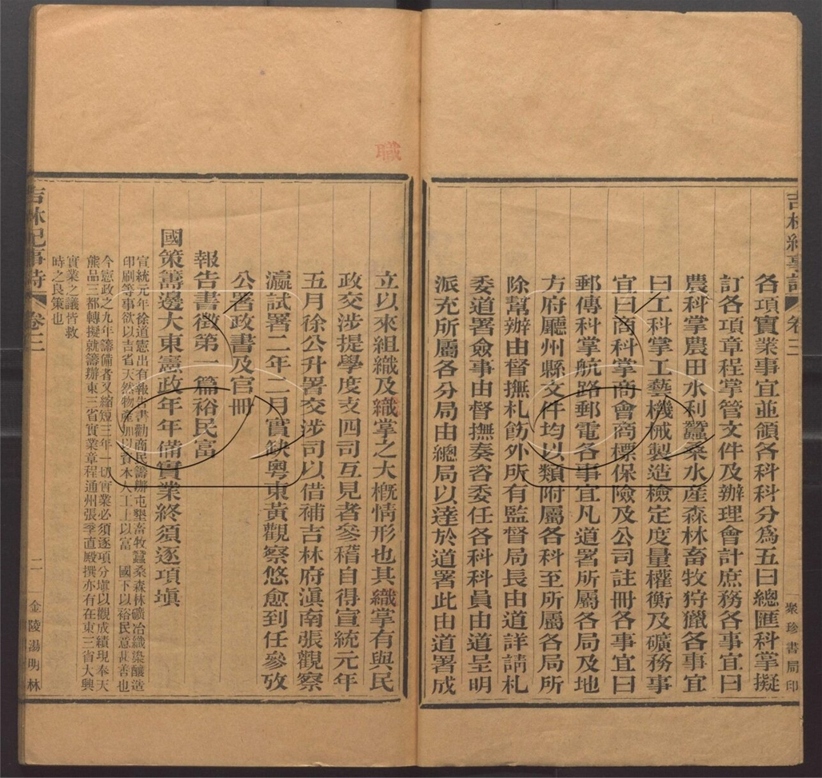 吉林紀事詩 卷三
各項實業事宜並領各科科分爲五曰總匯科掌擬
訂各項章程掌管文件及辦理會計庶務各事宜曰
農科掌農田水利蠶桑水産森林畜牧狩獵各事宜
曰工科掌工藝機械製造檢定度量權衡及礦務事
宜曰商科掌商會商標保險及公司註冊各事宜曰
郵傳科掌航路郵電各事宜凡道署所屬各局及地
方府廳州縣文件均以類附屬各科至所屬各局所
除幫辦由督撫札飭外所有監督局長由道詳請札
委道署僉事由督撫奏咨委任各科科員由道呈明
派充所屬各分局由總局以達於道署此由道署成
聚珍書局印
職
立以來組織及織掌之大槪情形也其織掌有與民
政交涉提學度支四司互見者參稽自得宣統元年
五月徐公升署交涉司以借補吉林府滇南張觀察
瀛試署二年二月實缺粤東黃觀察悠愈到任參攷
公署政書及官冊
報告書徵第一篇裕民富
國策籌邊大東憲政年年備實業終須逐項塡
宣統元年徐道憲出有報告書勸商民籌辦屯墾畜牧蠶桑森林礦冶織染釀造
印刷等事欲以吉省天然物產加以資本人工上以富 國下以裕民意此書也
今憲政之九年籌備者又縮短三年一切實業必須逐項分塡以觀成績現奉天
熊品三都轉擬就籌辦東三省實業章程通州張季直殿撰亦有在東三省大興
實業之議皆救
時之良策也
吉林紀事詩 卷三
二 金陵湯明林